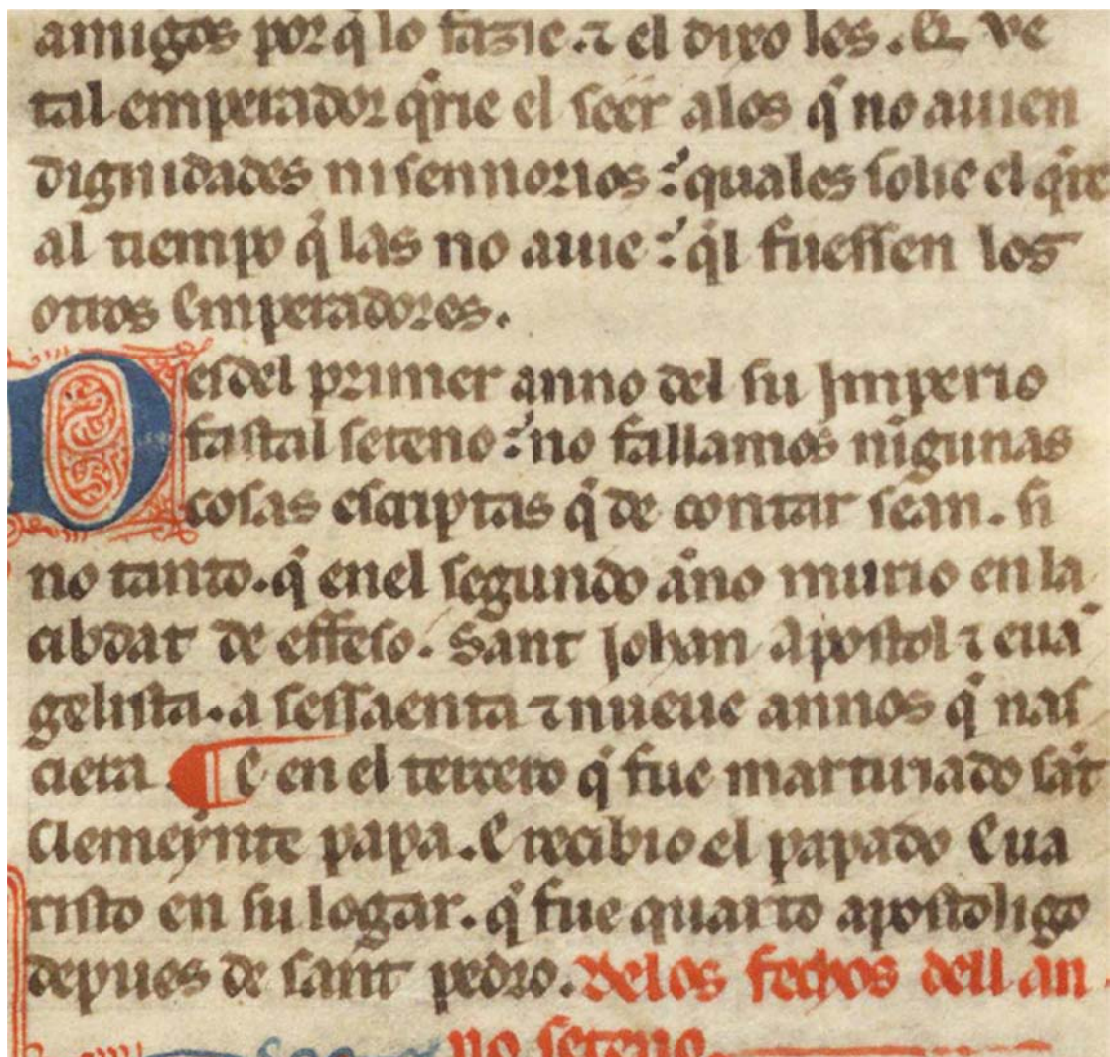 amigos por q̃ lo fazie. ⁊ el dixo les. Q̃ ve
tal emperador q̃rie el seer alos q̃ no auien
dignidades ni sennorios: quales solie el q̃rer
al tiempo q̃ las no auie: q̃l fuessen los
otros Emperadores.
Desdel primer anno del su Jmperio
fastal seteno: no fallamos nĩgunas
cosas escriptas q̃ de contar sean. si
no tanto. q̃ enel segundo año murio en la
cibdat de effeso. Sant Johan Apostol ⁊ euã
gelista. a sessaenta ⁊ nueue annos q̃ nas
ciera. E en el tercero q̃ fue marturiado sãt
Clemeynte papa. E recibio el papado Eua
risto en su logar. q̃ fue quarto apostoligo
depues de sant pedro. Delos fechos dell an
no seteno.